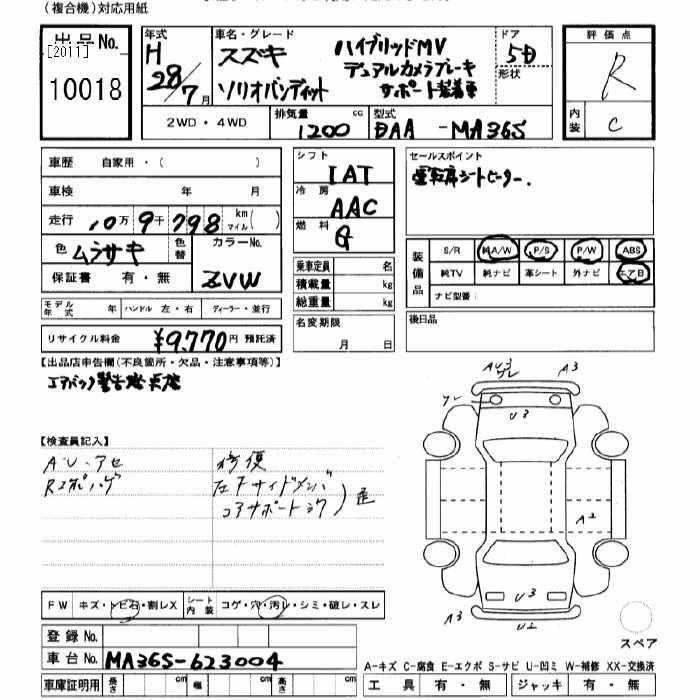 (複合機)対応用紙
出品No.
[2011]
10018
年式
H
28/7月
車名・グレード
スズキ
ソリオバンディット
ハイブリッドMV
デュアルカメラブレーキ
サポート装着車
ドア
5D
形状
評価点
R
内装
C
2WD・4WD
排気量
1200
cc
型式
DAA-MA36S
車歴 自家用・( )
車検 年 月
走行 10万9千798 km マイル( )
色 ムラサキ
色替
カラーNo.
ZVW
保証書 有・無
モデル年式 年 ハンドル 左・右 ディーラー・並行
リサイクル料金 ¥9,770円 預託済
シフト
IAT
冷房
AAC
燃料
G
乗車定員 名
積載量 kg
総重量 kg
名変期限
月 日
セールスポイント
運転席シートヒーター.
装備品
S/R 純A/W P/S P/W ABS
純TV 純ナビ 革シート 外ナビ エアB
ナビ型番:
後日品
【出品店申告欄(不良箇所・欠品・注意事項等)】
エアバック警告灯点灯
【検査員記入】
A・U・アセ
Rエンボハゲ
修復
左下サイドメンバ
コアサポートシタ
歪
AU3
ワレ
A3
ワレ
U3
A2
U3
A3
U2
スペア
FW キズ・トビ石・割レX
シート内装 コゲ・穴・汚レ・シミ・破レ・スレ
登録No.
車台No. MA36S-623004
車庫証明用 長さ cm 幅 cm 高さ cm
A-キズ C-腐食 E-エクボ S-サビ U-凹ミ W-補修 XX-交換済
工具 有・無 ジャッキ 有・無